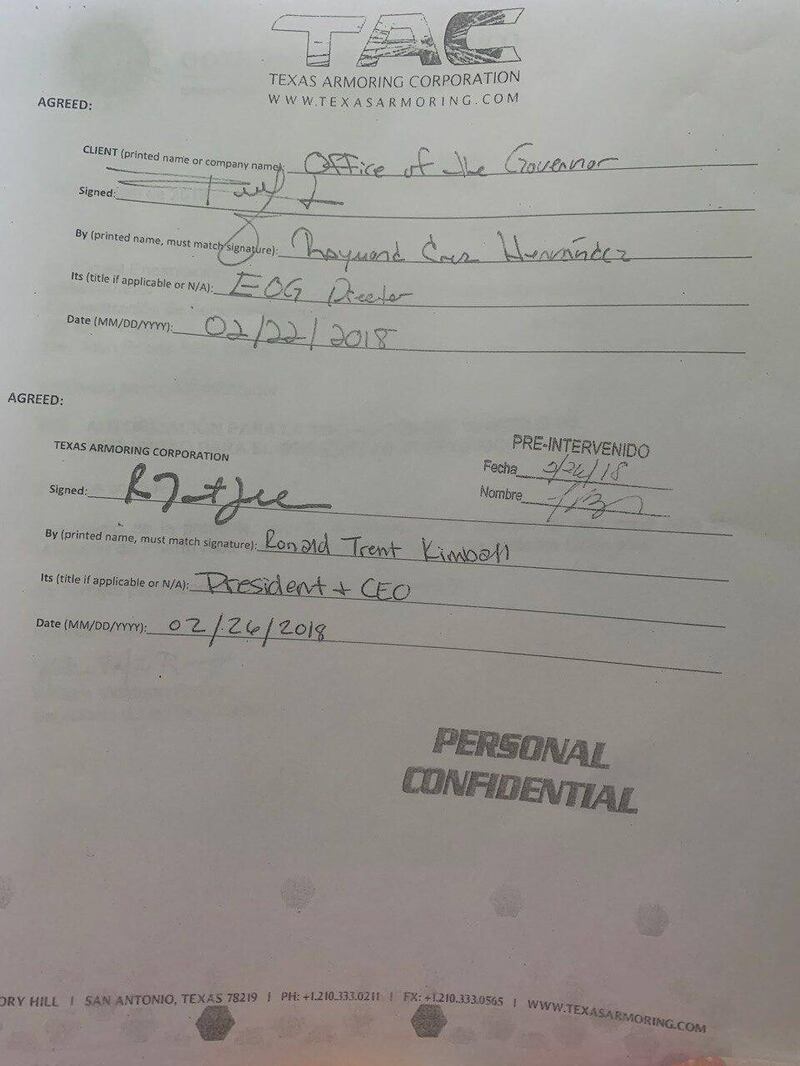 TAC
TEXAS ARMORING CORPORATION
WWW.TEXASARMORING.COM
AGREED:
CLIENT (printed name or company name): Office of the Governor
Signed:
By (printed name, must match signature): Raymond Hernández
Its (title if applicable or N/A): EOG Director
Date (MM/DD/YYYY): 02/22/2018
AGREED:
TEXAS ARMORING CORPORATION
PRE-INTERVENIDO
Fecha 2/26/18
Nombre
Signed:
By (printed name, must match signature): Ronald Trent Kimball
Its (title if applicable or N/A): President + CEO
Date (MM/DD/YYYY): 02/26/2018
PERSONAL
CONFIDENTIAL
ORY HILL | SAN ANTONIO, TEXAS 78219 | PH: +1.210.333.0211 | FX: +1.210.333.0565 | WWW.TEXASARMORING.COM